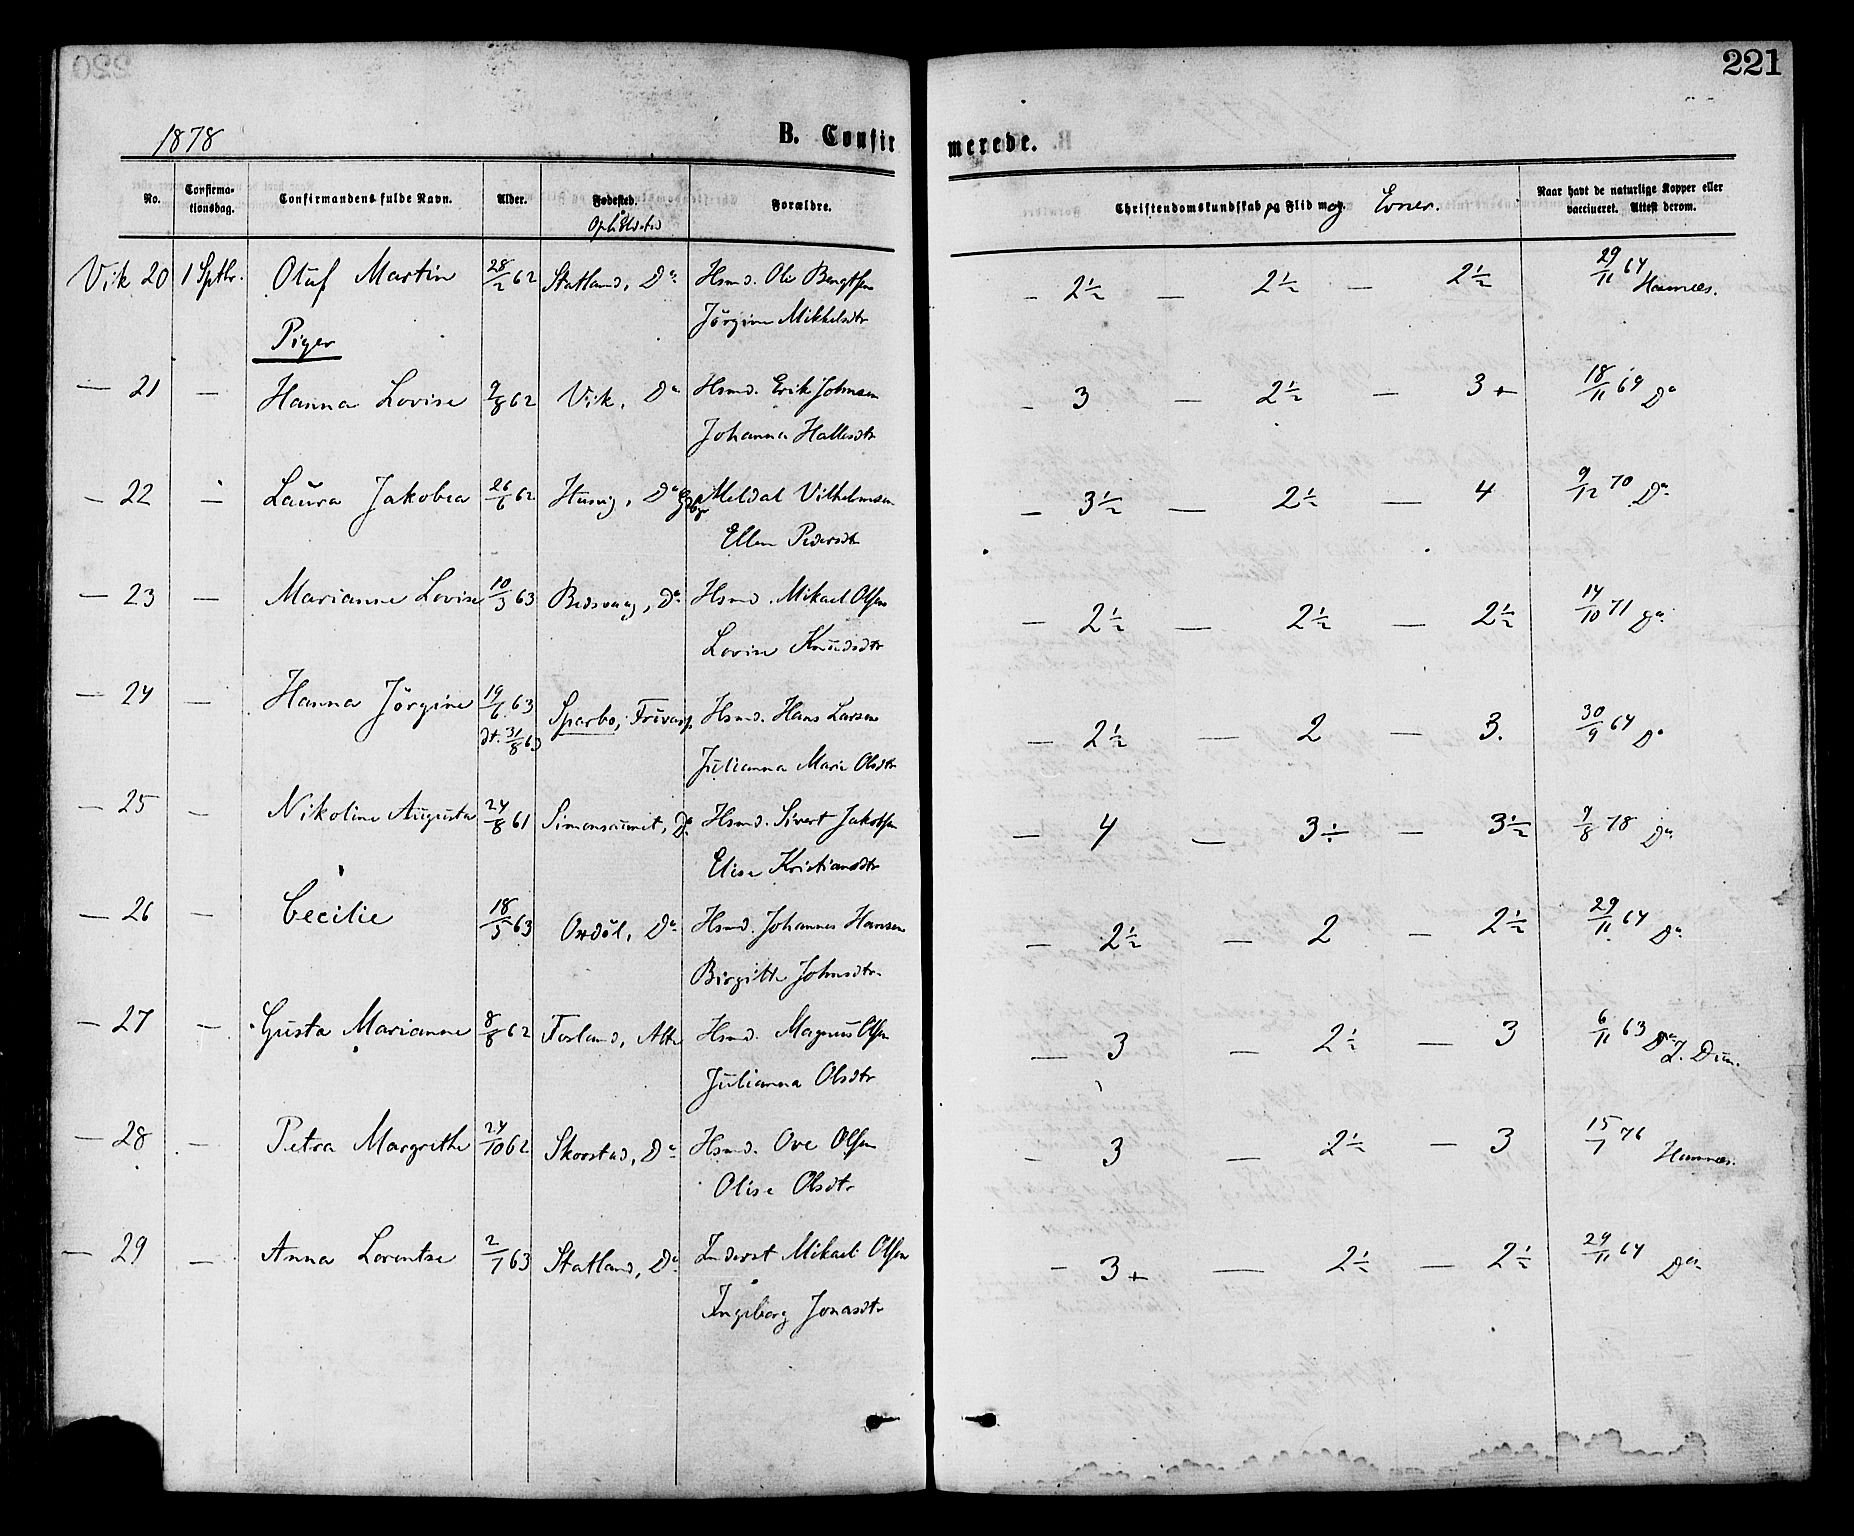 221
1878 B. Confirmerede.
No. Confirmationsdag. Confirmandens fulde Navn. Alder. Fødested. Forældre. Christendomskundskab og Flid m. og Evner. Naar havt de naturlige Kopper eller vaccineret. Attest derom.
Vik 20 1 Sptbr. Oluf Martin 28/2 62 Statland, Do Hsmd. Ole Bengtsen — 2½ — 2½ — 2½ 29/11 64
Jörgine Mikkelsdtr
Piger
— 21 — Hanna Lovise 9/8 62 Vik, Do Hsmd. Erik Johnsen — 3 — 2½ — 3+ 18/11 69 Do
Johanna Hallesdtr
— 22 — Laura Jakobea 26/6 62 Do Meldal Vilhelmsen — 3½ — 2½ — 4 9/12 70 Do
Ellen Pedersdtr
— 23 — Marianne Lovise 10/3 63 Do Hsmd. Mikael Olsen — 2½ — 2½ — 2½ 14/10 71 Do
Lovise Knudsdtr
— 24 — Hanna Jörgine 19/6 63 Sparbo, Hsmd. Hans Larsen — 2½ — 2 — 3. 30/9 64 Do
dt. 31/8 63
Julianna Marie Olsdtr
— 25 — Nikoline Augusta 24/8 61 Do Hsmd. Sivert Jakobsen — 4 — 3÷ — 3½ 7/8 78 Do
Elise Kristiansdtr
— 26 — Cecilie 18/5 63 Do Hsmd. Johannes Hansen — 2½ — 2 — 2½ 29/11 64 Do
Birgitte Johnsdtr
— 27 — Gusta Marianne 8/8 62 Fosland, Hsmd. Magnus Olsen — 3 — 2½ — 3 6/11 63 Do
Julianna Olsdtr
— 28 — Petra Margrethe 24/10 62 Skorstad, Do Hsmd. Ove Olsen — 3 — 2½ — 3 15/7 76
Olise Olsdtr
— 29 — Anna Lorentse 2/1 63 Statland, Do Inderst Mikael Olsen — 3+ — 2½ — 2½ 29/11 64 Do
Ingeborg Jonasdtr